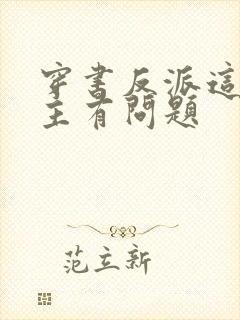 穿書反派這
主有問題
范立新